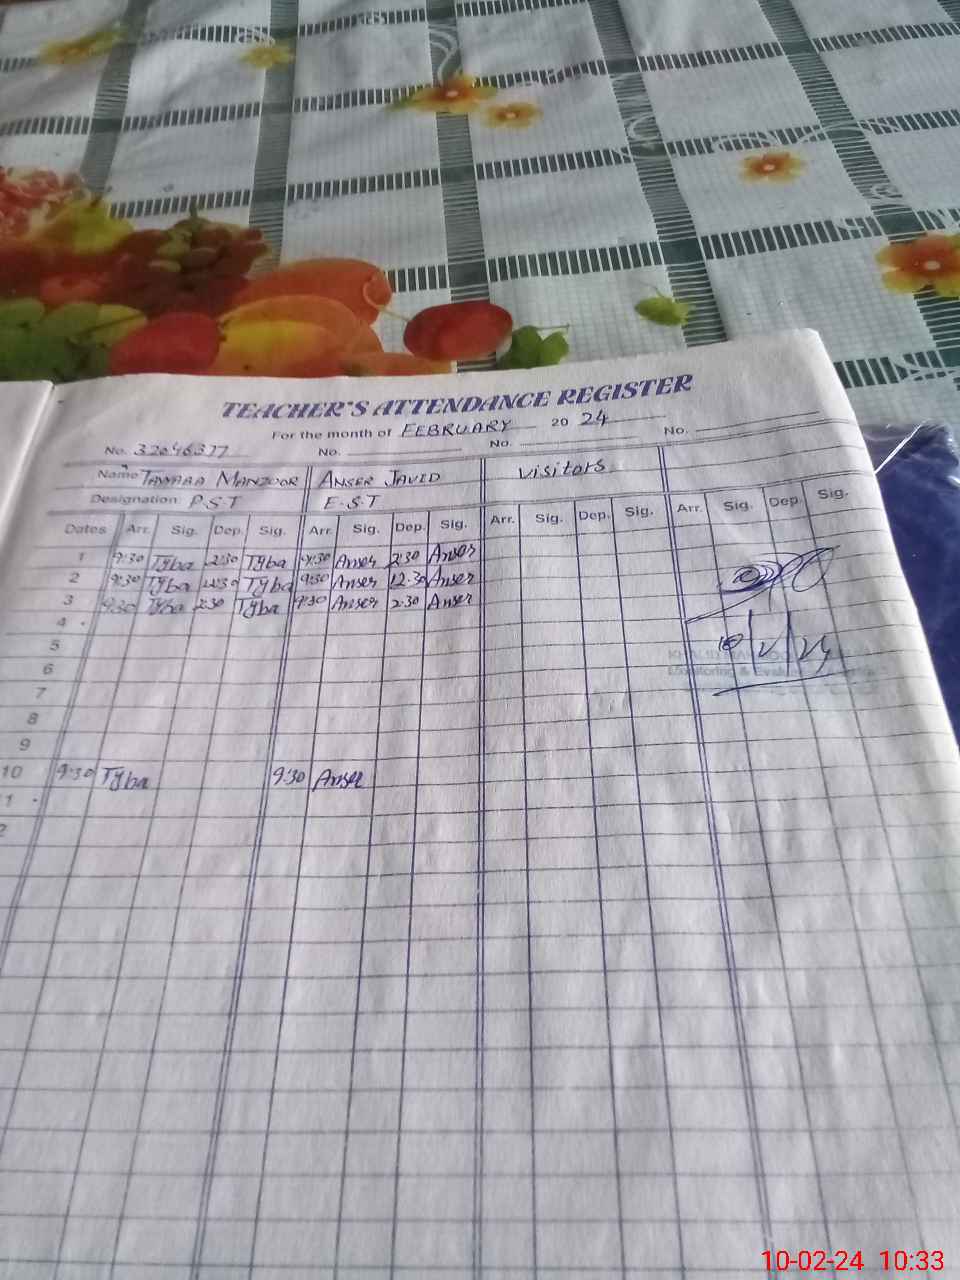 TEACHER'S ATTENDANCE REGISTER
For the month of FEBRUARY 20 24
No. 32046377 No. No. No.
Name TAYABA MANZOOR ANSER JAVID visitors
Designation P.S.T E.S.T
Dates Arr. Sig. Dep. Sig. Arr. Sig. Dep. Sig. Arr. Sig. Dep. Sig. Arr. Sig. Dep. Sig.
1 9:30 Tyba 2:30 Tyba 9:30 Anser 2:30 Anser
2 9:30 Tyba 12:30 Tyba 9:30 Anser 12.30 Anser
3 9:30 Tyba 2:30 Tyba 9:30 Anser 2.30 Anser
4
5
6
7
8
9
10 9:30 Tyba 9:30 Anser
1
2
10/2/24
Monitoring &
10-02-24 10:33